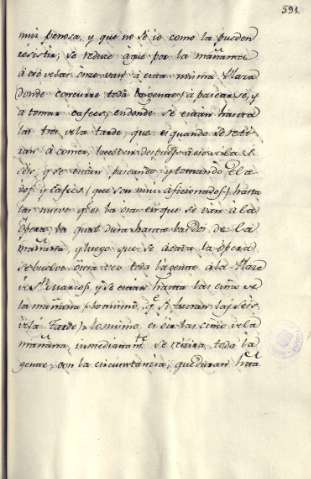 591
mui penosa, y que no sè io como la pueden
resistir; se reduce à que por la mañana
à las onze van à esta misma Plaza
donde concurre toda la gente à pasearse, y
à tomar cafees, en donde se estan hasta
las tres de la tarde, que es quando se reti-
ran à comer, buelven despues à eso de las
seis, y se estan paseando, y tomando
y cafees (que son mui aficionados) hasta
las nueve que es la ora en que se van à la
opera, la qual dura hasta las dos de la
mañana, y luego que se acava la opera
se buelve otra vez toda la gente à la Plaza
de Sn. Marcos, y se estan hasta las cinco de
la mañana
de la tarde) lo mismo, en dar las cinco de la
mañana, inmediatamte. se retira toda la
gente, con la circunstancia, que duran hasta